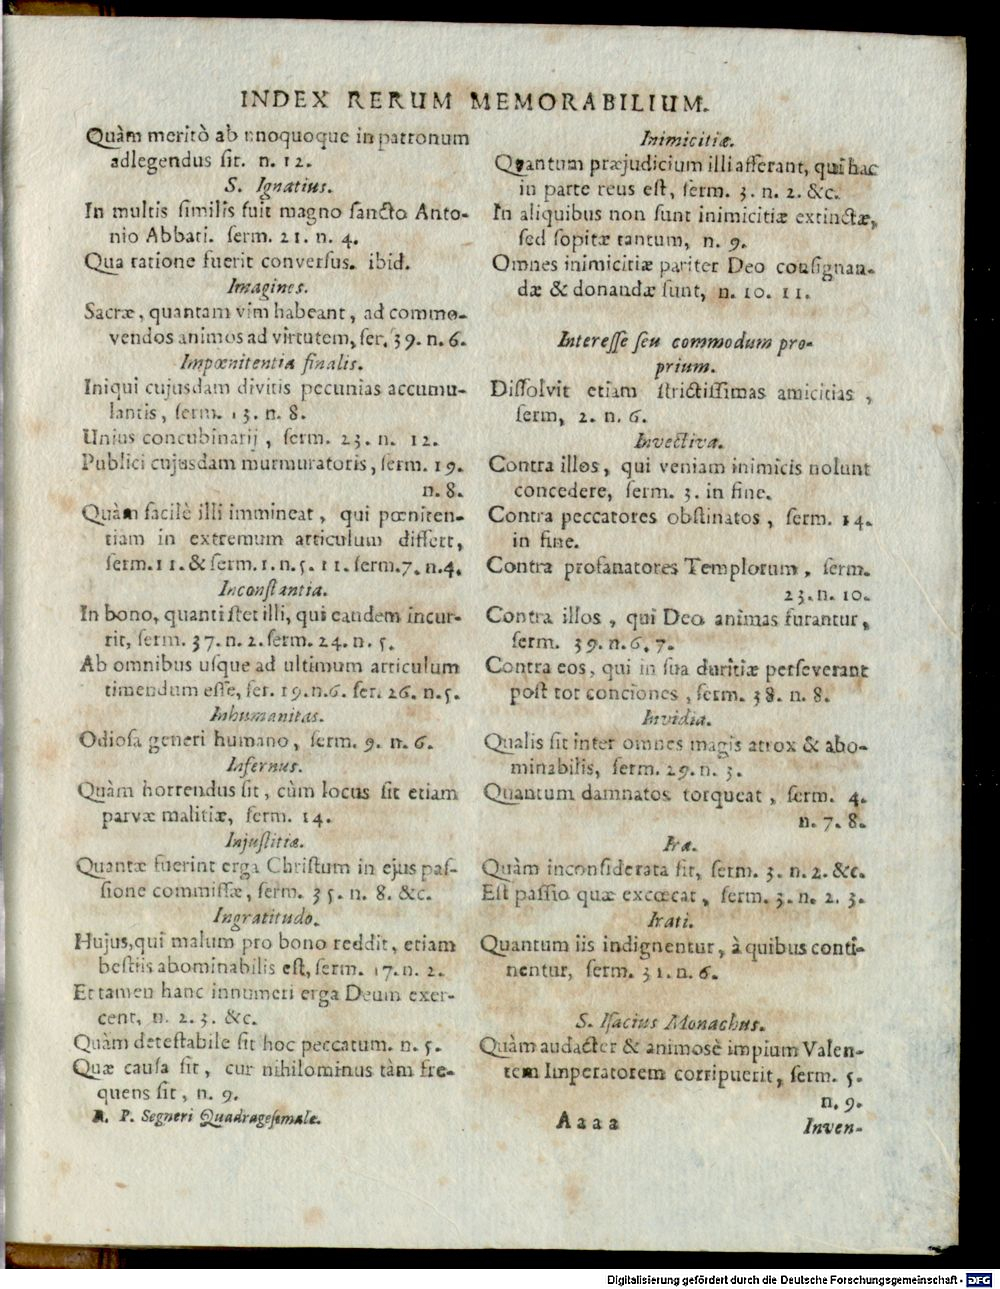 INDEX RERUM MEMORABILIUM.
Quàm meritò ab unoquoque in patronum
adlegendus sit. n. 12.
S. Ignatius.
In multis similis fuit magno sancto Anto-
nio Abbati. serm. 21. n. 4.
Qua ratione fuerit conversus. ibid.
Imagines.
Sacræ, quantam vim habeant, ad commo-
vendos animos ad virtutem, ser. 39. n. 6.
Impœnitentia finalis.
Iniqui cujusdam divitis pecunias accumu-
lantis, serm. 13. n. 8.
Unius concubinarij, serm. 23. n. 12.
Publici cujusdam murmuratoris, serm. 19.
n. 8.
Quàm facilè illi immineat, qui pœniten-
tiam in extremum articulum differt,
serm. 11. & serm. 1. n. 5. 11. serm. 7. n. 4.
Inconstantia.
In bono, quanti stet illi, qui eandem incur-
rit, serm. 37. n. 2. serm. 24. n. 5.
Ab omnibus usque ad ultimum articulum
timendum esse, ser. 19. n. 6. ser. 26. n. 5.
Inhumanitas.
Odiosa generi humano, serm. 9. n. 6.
Infernus.
Quàm horrendus sit, cùm locus sit etiam
parvæ malitiæ, serm. 14.
Injustitiæ.
Quantæ fuerint erga Christum in ejus pas-
sione commissæ, serm. 35. n. 8. &c.
Ingratitudo.
Hujus, qui malum pro bono reddit, etiam
bestiis abominabilis est, serm. 17. n. 2.
Et tamen hanc innumeri erga Deum exer-
cent, n. 2. 3. &c.
Quàm detestabile sit hoc peccatum. n. 5.
Quæ causa sit, cur nihilominus tàm fre-
quens sit, n. 9.
R. P. Segneri Quadragesimale.
Inimicitiæ.
Quantum præjudicium illi afferant, qui hac
in parte reus est, serm. 3. n. 2. &c.
In aliquibus non sunt inimicitiæ extinctæ,
sed sopitæ tantum, n. 9.
Omnes inimicitiæ pariter Deo consignan-
dæ & donandæ sunt, n. 10. 11.
Interesse seu commodum pro-
prium.
Dissolvit etiam strictissimas amicitias,
serm, 2. n. 6.
Invectiva.
Contra illos, qui veniam inimicis nolunt
concedere, serm. 3. in fine.
Contra peccatores obstinatos, serm. 14.
in fine.
Contra profanatores Templorum, serm.
23. n. 10.
Contra illos, qui Deo animas furantur,
serm. 39. n. 6. 7.
Contra eos, qui in sua duritiæ perseverant
post tot conciones, serm. 38. n. 8.
Invidia.
Qualis sit inter omnes magis atrox & abo-
minabilis, serm. 29. n. 3.
Quantum damnatos torqueat, serm. 4.
n. 7. 8.
Iræ.
Quàm inconsiderata sit, serm. 3. n. 2. &c.
Est passio quæ excœcat, serm. 3. n. 2. 3.
Irati.
Quantum iis indignentur, à quibus conti-
nentur, serm. 31. n. 6.
S. Isacius Monachus.
Quàm audacter & animosè impium Valen-
tem Imperatorem corripuerit, serm. 5.
n. 9.
Aaaa
Inven-
Digitalisierung gefördert durch die Deutsche Forschungsgemeinschaft - DFG